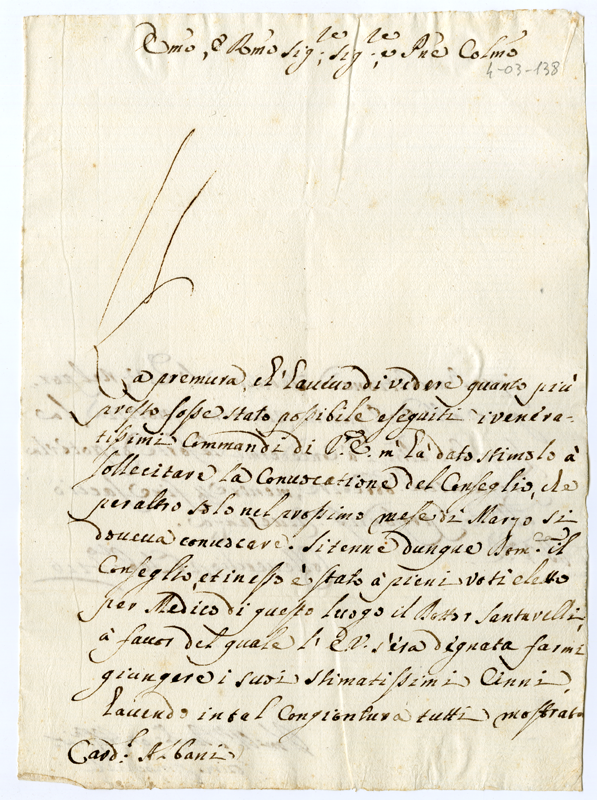 Emo, e Rmo Sig.re Sig.re, e Pne Colmo
4-03-138
La premura, ch'havevo di vedere quanto più
presto fosse stato possibile eseguiti i venera-
tissimi Commandi di V.E. m'ha dato stimolo à
sollecitare la Convocatione del Conseglio, che
peraltro solo nel prossimo mese di Marzo si
doveva convocare. Si tenne dunque Dom.ca il
Conseglio, et in esso è stato à pieni voti eletto
per Medico di questo luogo il Dottor Santarelli,
à favor del quale l'E.V. s'era dignata farmi
giungere i suoi stimatissimi Cenni,
havendo in tal Congiontura tutti mostrato
Card.l Albani